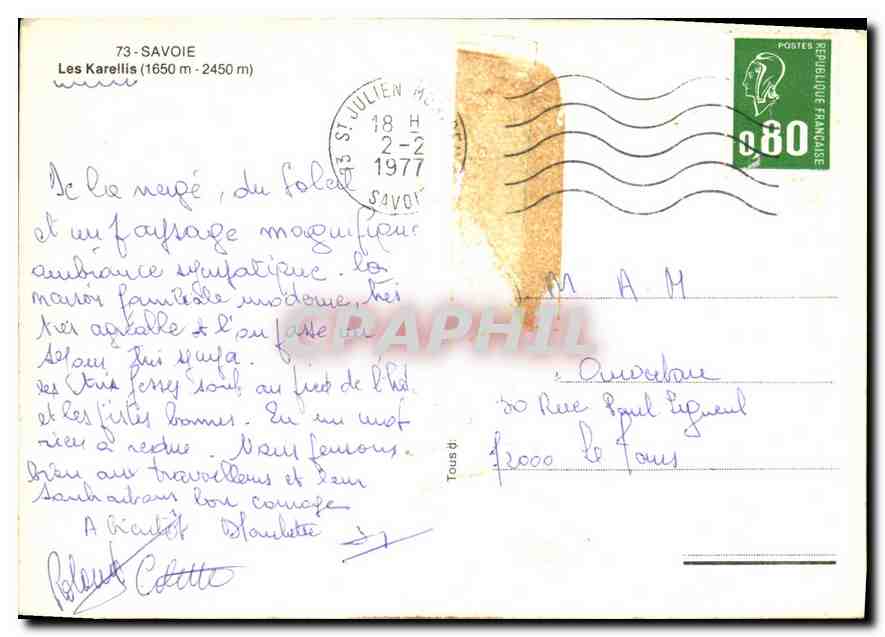 73 - SAVOIE
Les Karellis (1650 m - 2450 m)
73 ST JULIEN MON
18 H
2-2
1977
SAVOIE
POSTES
REPUBLIQUE FRANÇAISE
0,80
De la neige, du Soleil
et un paysage magnifique
ambiance sympatique. La
maison familiale moderne, très
très agréable et l'on passe un
séjour très sympa.
les sont au pied de l'hôt
et les pistes bonnes. En un mot
rien à redire. Nous pensons
bien aux travailleurs et leur
souhaitons bon courage
A bientôt
Roland Colette
M A M
30 Rue Paul
72000 Le Mans
Tous d
CPAPHIL